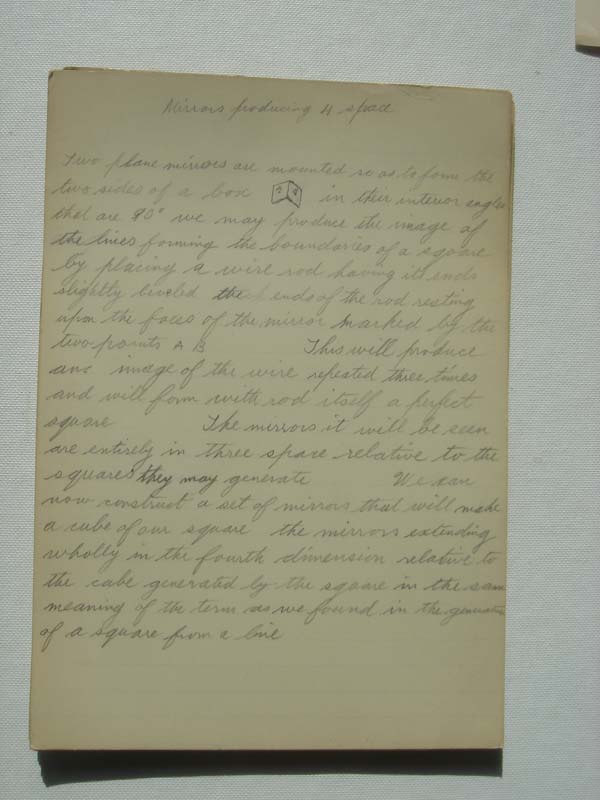 Mirrors producing 4 space
Two plane mirrors are mounted so as to form the
two sides of a box in their interior angles
that are 90° we may produce the image of
the lines forming the boundaries of a square
by placing a wire rod having its ends
slightly beveled the ends of the rod resting
upon the faces of the mirror marked by the
two points A B This will produce
an image of the wire repeated three times
and will form with rod itself a perfect
square The mirrors it will be seen
are entirely in three space relative to the
squares they may generate We can
now construct a set of mirrors that will make
a cube of our square the mirrors extending
wholly in the fourth dimension relative to
the cube generated by the square in the same
meaning of the term as we found in the generation
of a square from a line